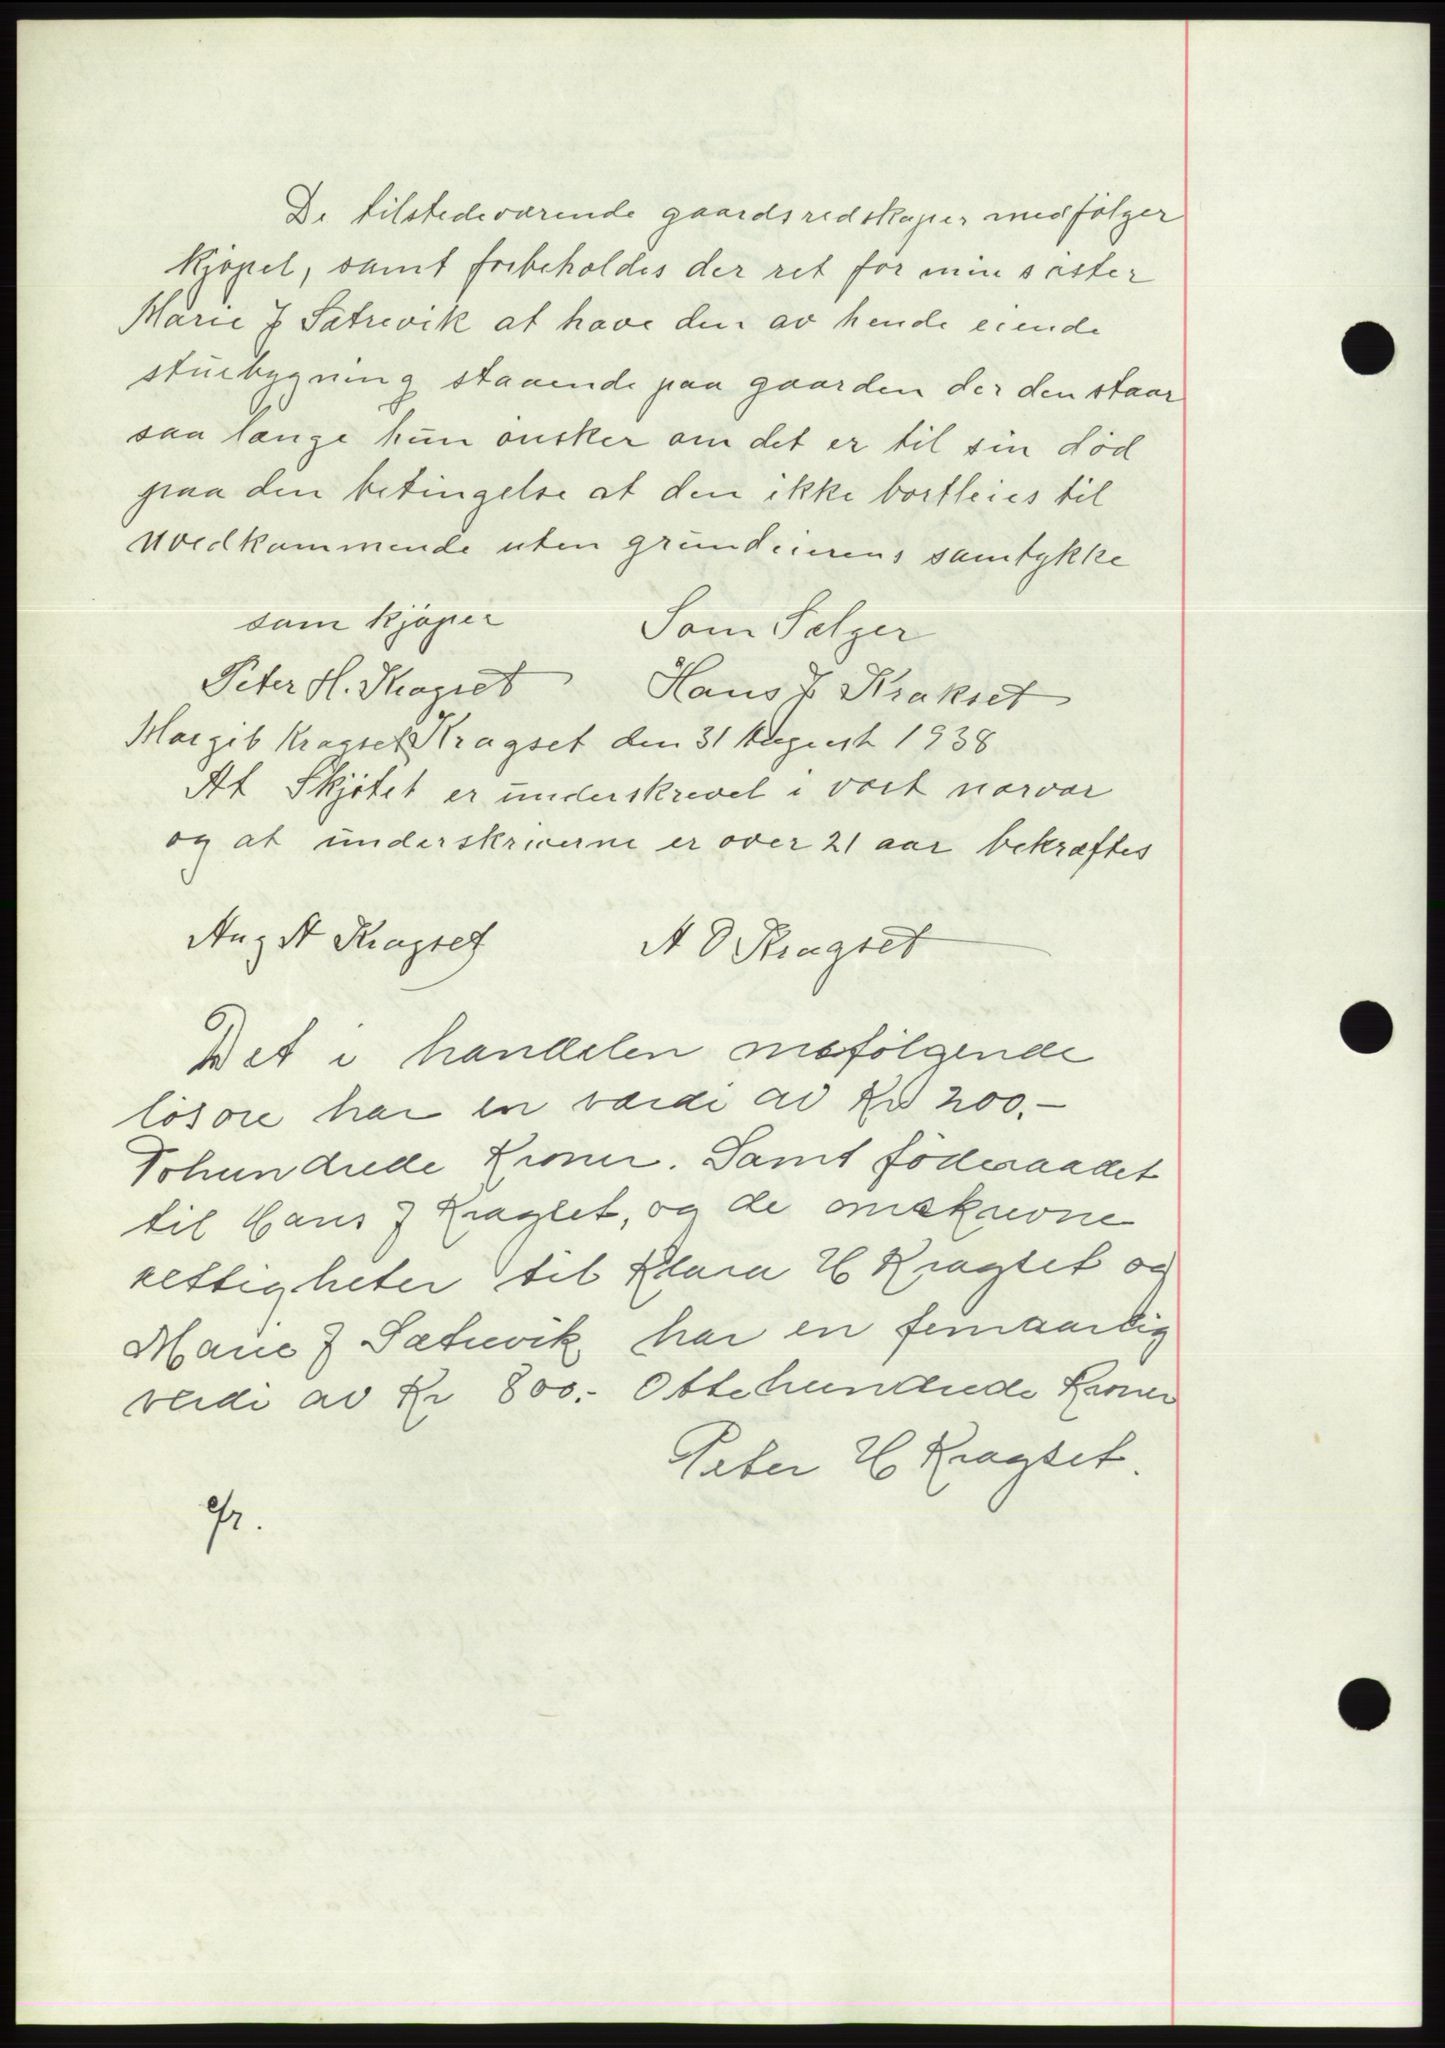 De tilstedeværende gaardsredskaper medfølger
kjøpet, samt forbeholdes der ret for min søster
Marie J Sætrevik at have den av hende eiende
stuebygning staaende paa gaarden der den staar
saa længe hun ønsker om det er til sin død
paa den betingelse at den ikke bortleies til
uvedkommende uten grundeierens samtykke
som kjøper Som Sælger
Peter H. Kragset Hans J Krakset
Margit Kragset Kragset den 31 August 1938
At Skjøtet er underskrevet i vort nærvær
og at underskriverne er over 21 aar bekræftes
Aug A Kragset A O Kragset
Det i handelen mefølgende
løsøre har en værdi av Kr 200.-
Tohundrede Kroner. Samt føderaadet
til Hans J Kragset, og de omskrevne
rettigheter til Klara H Kragset og
Marie J Sætrevik har en femaarlig
verdi av Kr 800.- Ottehundrede Kroner
Peter H Kragset.